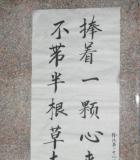 捧着一颗心来
不带半根草去